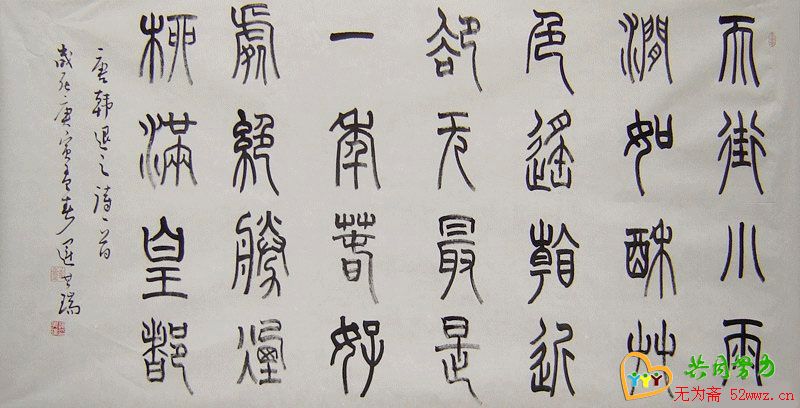 天街小雨
潤如酥艸
色遙看近
卻无最是
一年萅好
處絕勝煙
柳滿皇都
唐韓退之詩一首
歲在庚寅孟春瑞
共同努力
无为斋 52wwz.cn